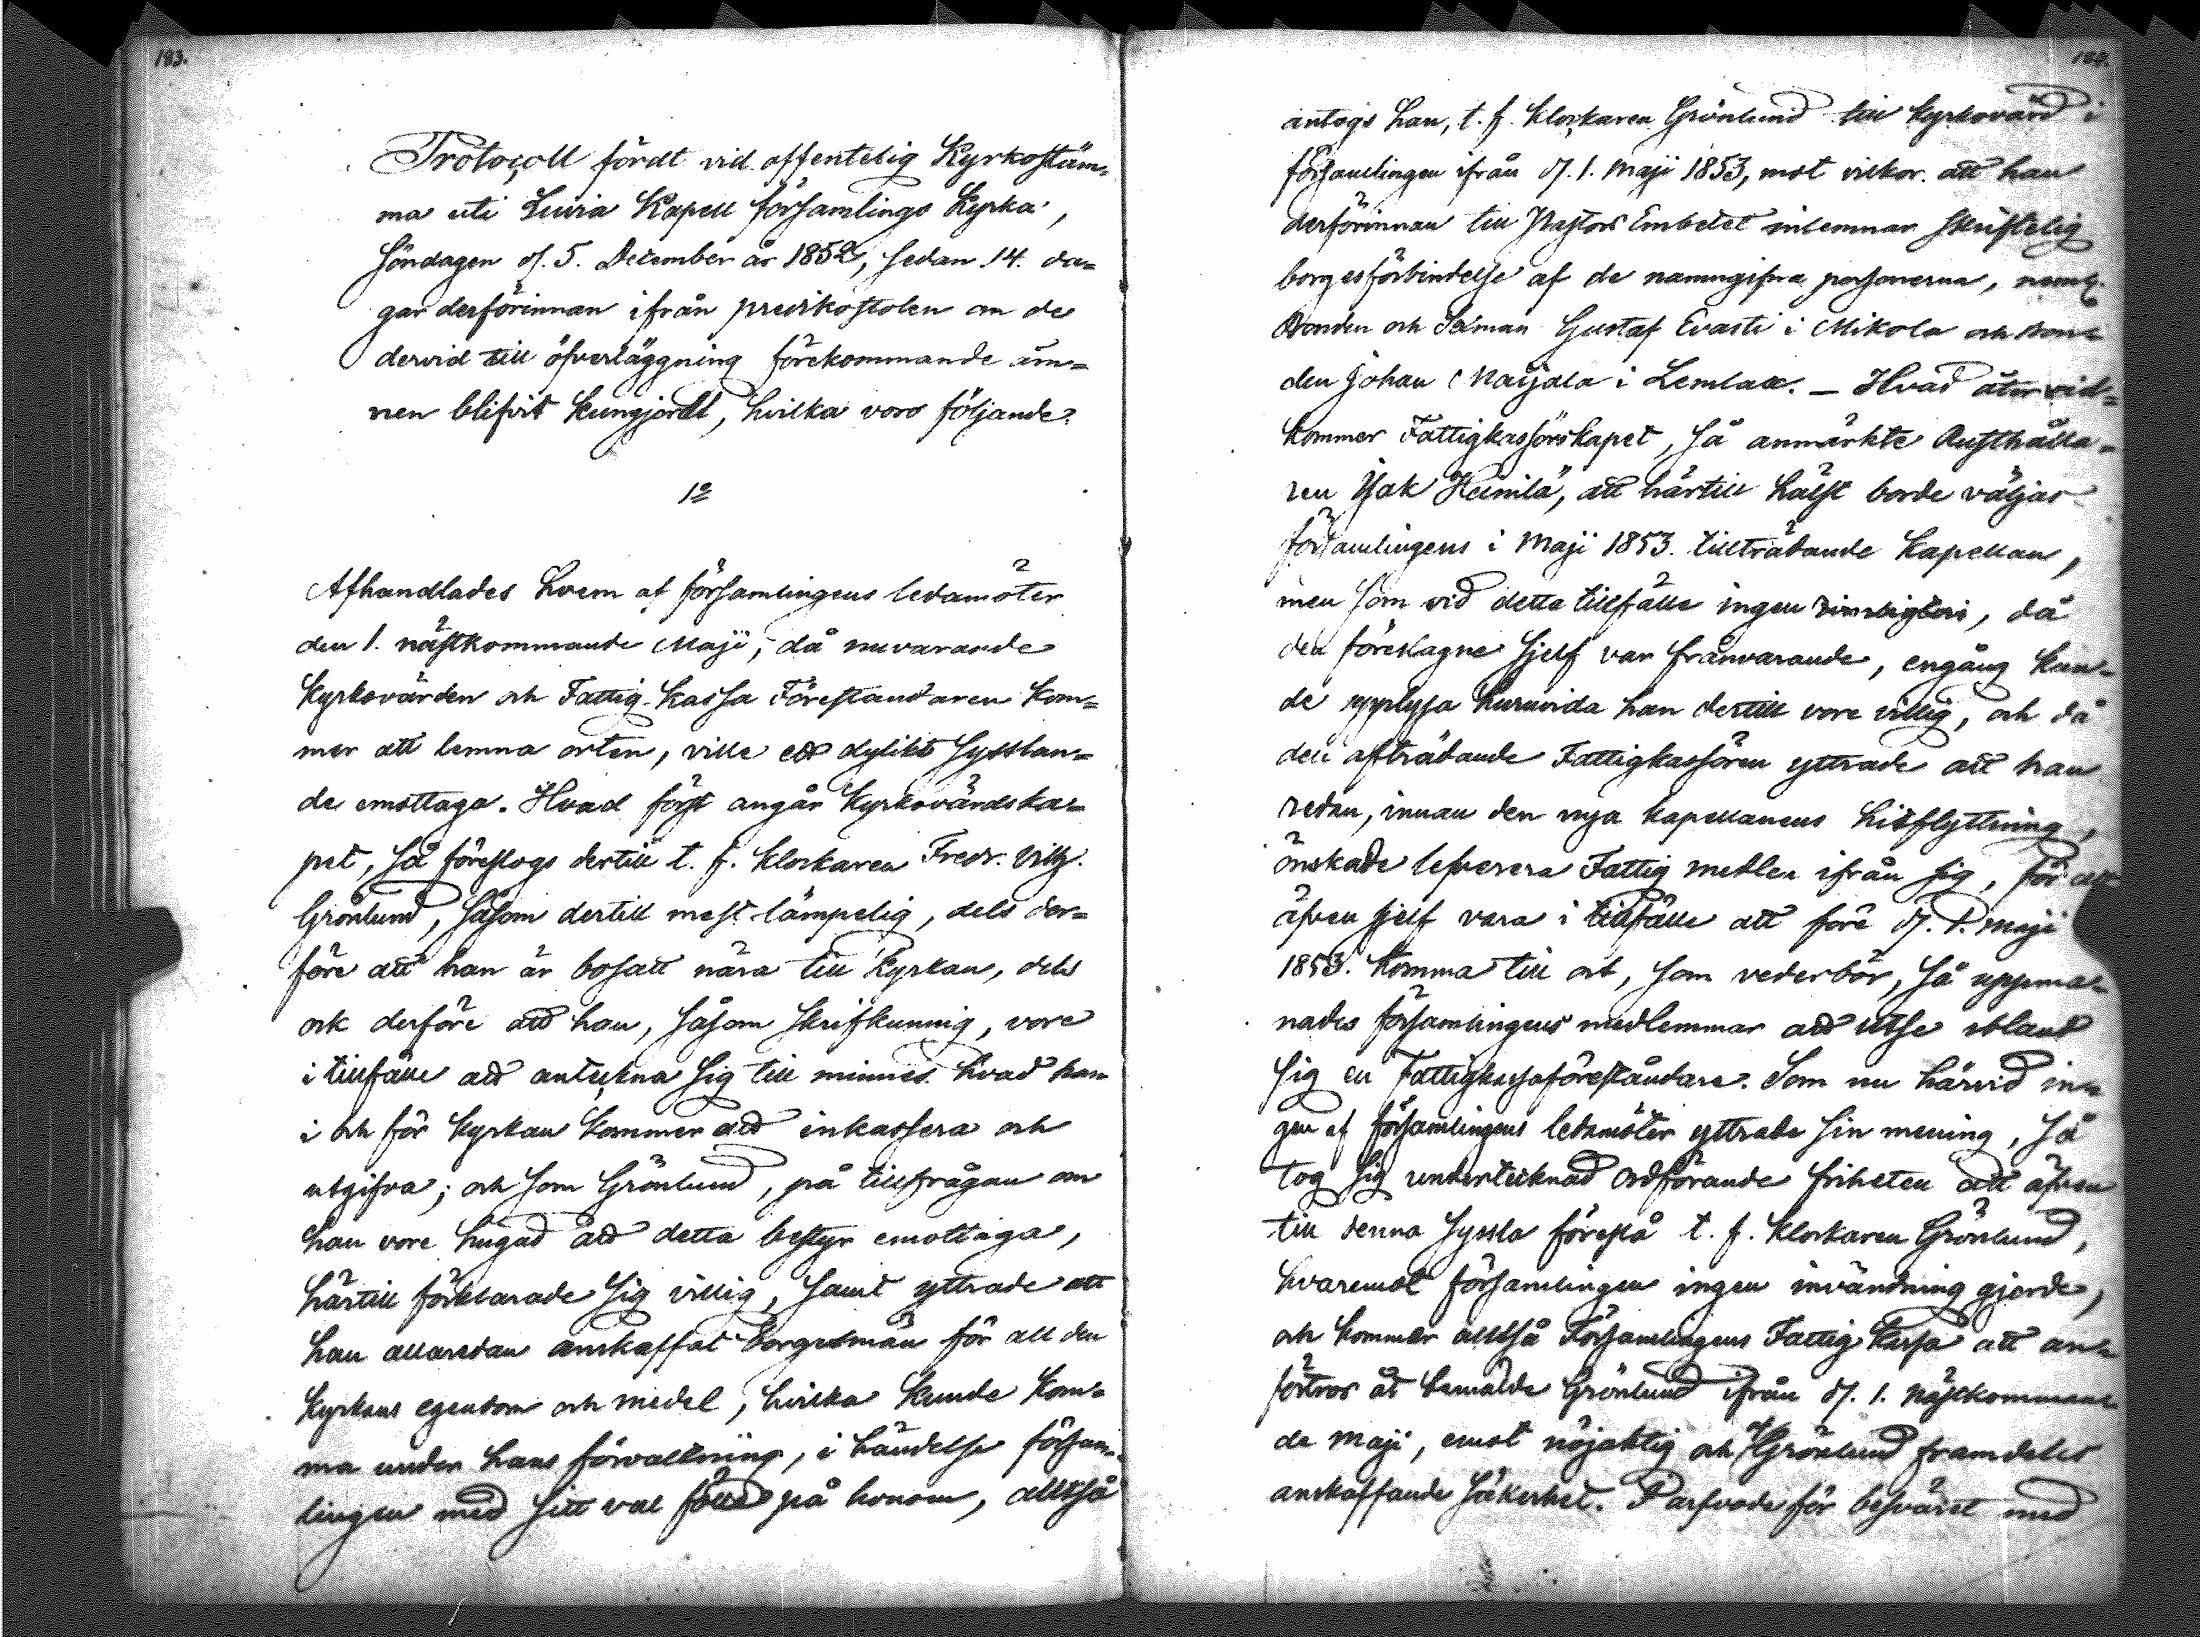 193.
Protocoll fördt vid offentelig Kyrkostäm=
ma uti Luvia Kapell församlings Kyrka,
Söndagen d. 5. December år 1852, sedan 14. da=
gar derförinnan ifrån predikostolen om de
dervid till öfverläggning förekommande äm=
nen blifvit kungjordt, hvilka voro följande:
1o
Afhandlades hvem af församlingens ledamöter
den 1. nästkommande Maji, då nuvarande
Kyrkovärden och Fattig-Kassa Föreståndaren kom=
mer att lemna orten, ville ett dylikt Sysslan=
de emottaga. Hvad först angår Kyrkovärdska=
pet, så föreslogs dertill t. f. klockaren Fredr. Vilh.
Grönlund, såsom dertill mest lämpelig, dels der=
före att han är bosatt nära till Kyrkan, dels
ock derföre att han, såsom skrifkunnig, vore
i tillfälle att anteckna sig till minnes hvad han
i och för kyrkan kommer att inkassera och
utgifva; och som Grönlund, på tillfrågan om
han vore hugad att detta bestyr emottaga,
härtill förklarade sig villig, samt yttrade att
han allaredan anskaffat borgesmän för all den
Kyrkans egendom och medel, hvilka kunde kom=
ma under hans förvaltning, i händelse försam=
lingen med sitt val fölle på honom, alltså
antogs han, t. f. klockaren Grönlund till kyrkovärd i
församlingen ifrån d. 1. Maji 1853, mot vilkor att han
derförinnan till Pastors Embetet inlemnar skriftelig
borgesförbindelse af de namngifna personerna, neml.
Bonden och Gustaf Evasti i Mikola och Bon=
den Johan Maijala i Lemlax. — Hvad åter vid=
kommer Fattigkassörskapet, så anmärkte Rusthålla=
ren Isak Heinilä, att härtill hälst borde väljas
församlingens i Maji 1853. tillträdande Kapellan,
men som vid detta tillfälle ingen , då
den föreslagne sjelf var frånvarande, engång kun=
de upplysa huruvida han dertill vore villig, och då
den afträdande Fattigkassören yttrade att han
redan, innan den nya kapellanens hitflyttning,
önskade lefverera Fattig medlen ifrån sig, för att
äfven sjelf vara i tillfälle att före d. 1. Maji
1853. komma till ort, som vederbör, så uppma=
nades församlingens medlemmar att utse ibland
sig en Fattigkassaföreståndare. Som nu härvid in=
gen af församlingens ledamöter yttrade sin mening, så
tog sig undertecknad Ordförande friheten att äfven
till denna syssla föreslå t. f. klockaren Grönlund,
hvaremot församlingen ingen invändning gjorde,
och kommer alltså Församlingens Fattig Kassa att an=
förtros åt bemälde Grönlund ifrån d. 1. nästkomman=
de Maji, emot nöjaktig och af Grönlund framdeles
anskaffande säkerhet. I arfvode för besväret med